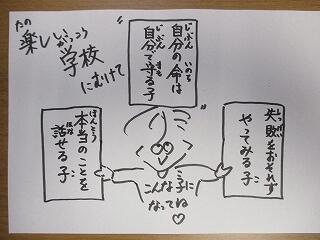 たの
楽しい
がっこう
学校
にむけて
じぶん いのち
自分の命は
じぶん まも
自分で守る子
しっぱい
失敗をおそれず
やってみる子
こ
ほんとう
本当のことを
はな こ
話せる子
こんな子に
なってね♡